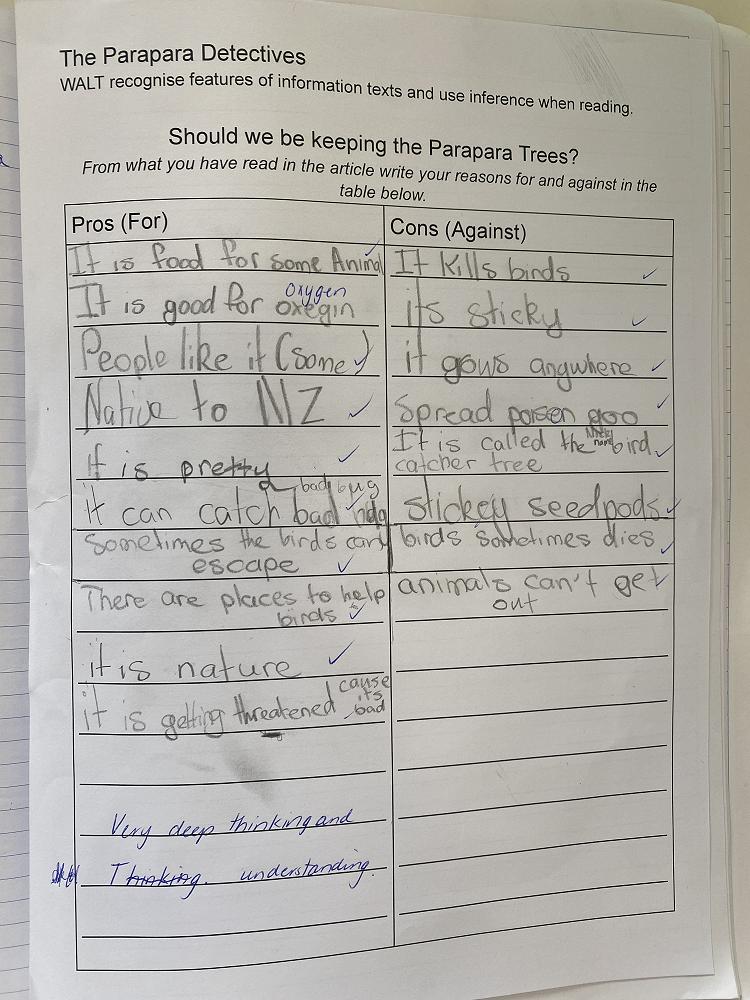 The Parapara Detectives
WALT recognise features of information texts and use inference when reading.
Should we be keeping the Parapara Trees?
From what you have read in the article write your reasons for and against in the
table below.
Pros (For)
It is food for some Animal
oxygen
It is good for oxegin
People like it (some)
Native to NZ
it is pretty
bad bug
it can catch bad
Sometimes the birds can
escape
There are places to help
birds
it is nature
cause
its
it is getting threatened bad
Very deep thinking and
Thinking. understanding.
Cons (Against)
It kills birds
its sticky
it grows anywhere
Spread poisen goo
It is called the bird
catcher tree
stickey seedpods
birds sometimes dies
animals can't get
out